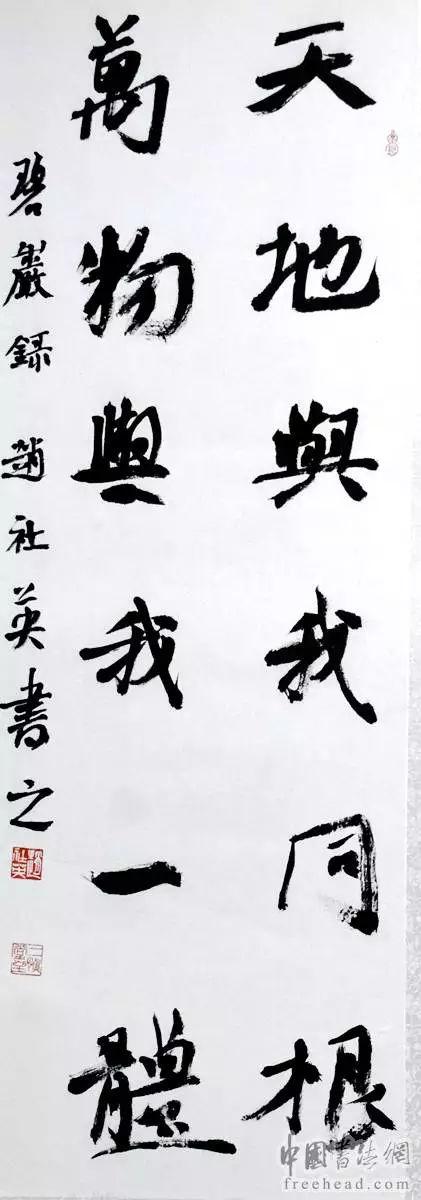 天地與我同根
萬物與我一體
碧巖錄 趙社英書之
趙社英
中國書法網
freehead.com